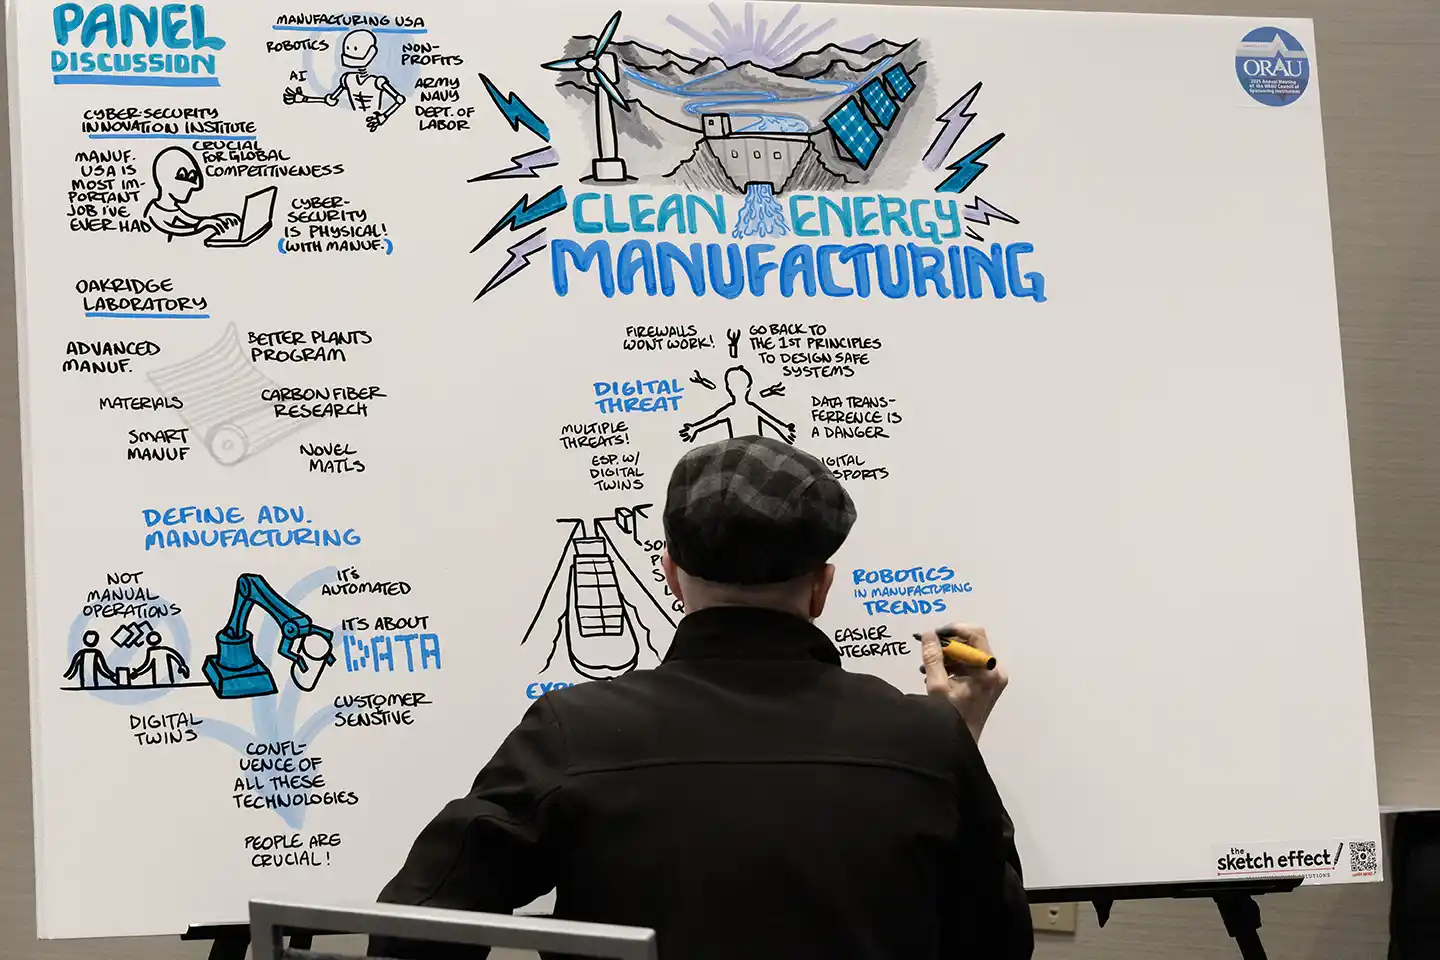 PANEL
DISCUSSION
MANUFACTURING USA
ROBOTICS
AI
NON-
PROFITS
ARMY
NAVY
DEPT. OF
LABOR
CYBER-SECURITY
INNOVATION INSTITUTE
MANUF.
USA IS
MOST IM-
PORTANT
JOB I'VE
EVER HAD
CRUCIAL
FOR GLOBAL
COMPETITIVENESS
CYBER-
SECURITY
IS PHYSICAL!
(WITH MANUF.)
OAKRIDGE
LABORATORY
ADVANCED
MANUF.
BETTER PLANTS
PROGRAM
MATERIALS
CARBON FIBER
RESEARCH
SMART
MANUF
NOVEL
MATLS
DEFINE ADV.
MANUFACTURING
NOT
MANUAL
OPERATIONS
IT'S
AUTOMATED
IT'S ABOUT
DATA
CUSTOMER
SENSTIVE
DIGITAL
TWINS
CONFL-
UENCE OF
ALL THESE
TECHNOLOGIES
PEOPLE ARE
CRUCIAL!
CLEAN ENERGY
MANUFACTURING
FIREWALLS
WONT WORK!
GO BACK TO
THE 1ST PRINCIPLES
TO DESIGN SAFE
SYSTEMS
DIGITAL
THREAT
MULTIPLE
THREATS!
ESP. W/
DIGITAL
TWINS
DATA TRANS-
FERRENCE IS
A DANGER
ROBOTICS
IN MANUFACTURING
TRENDS
EASIER
ORAU
2025 Annual Meeting
of the ORAU Council of
Sponsoring Institutions
the
sketch effect